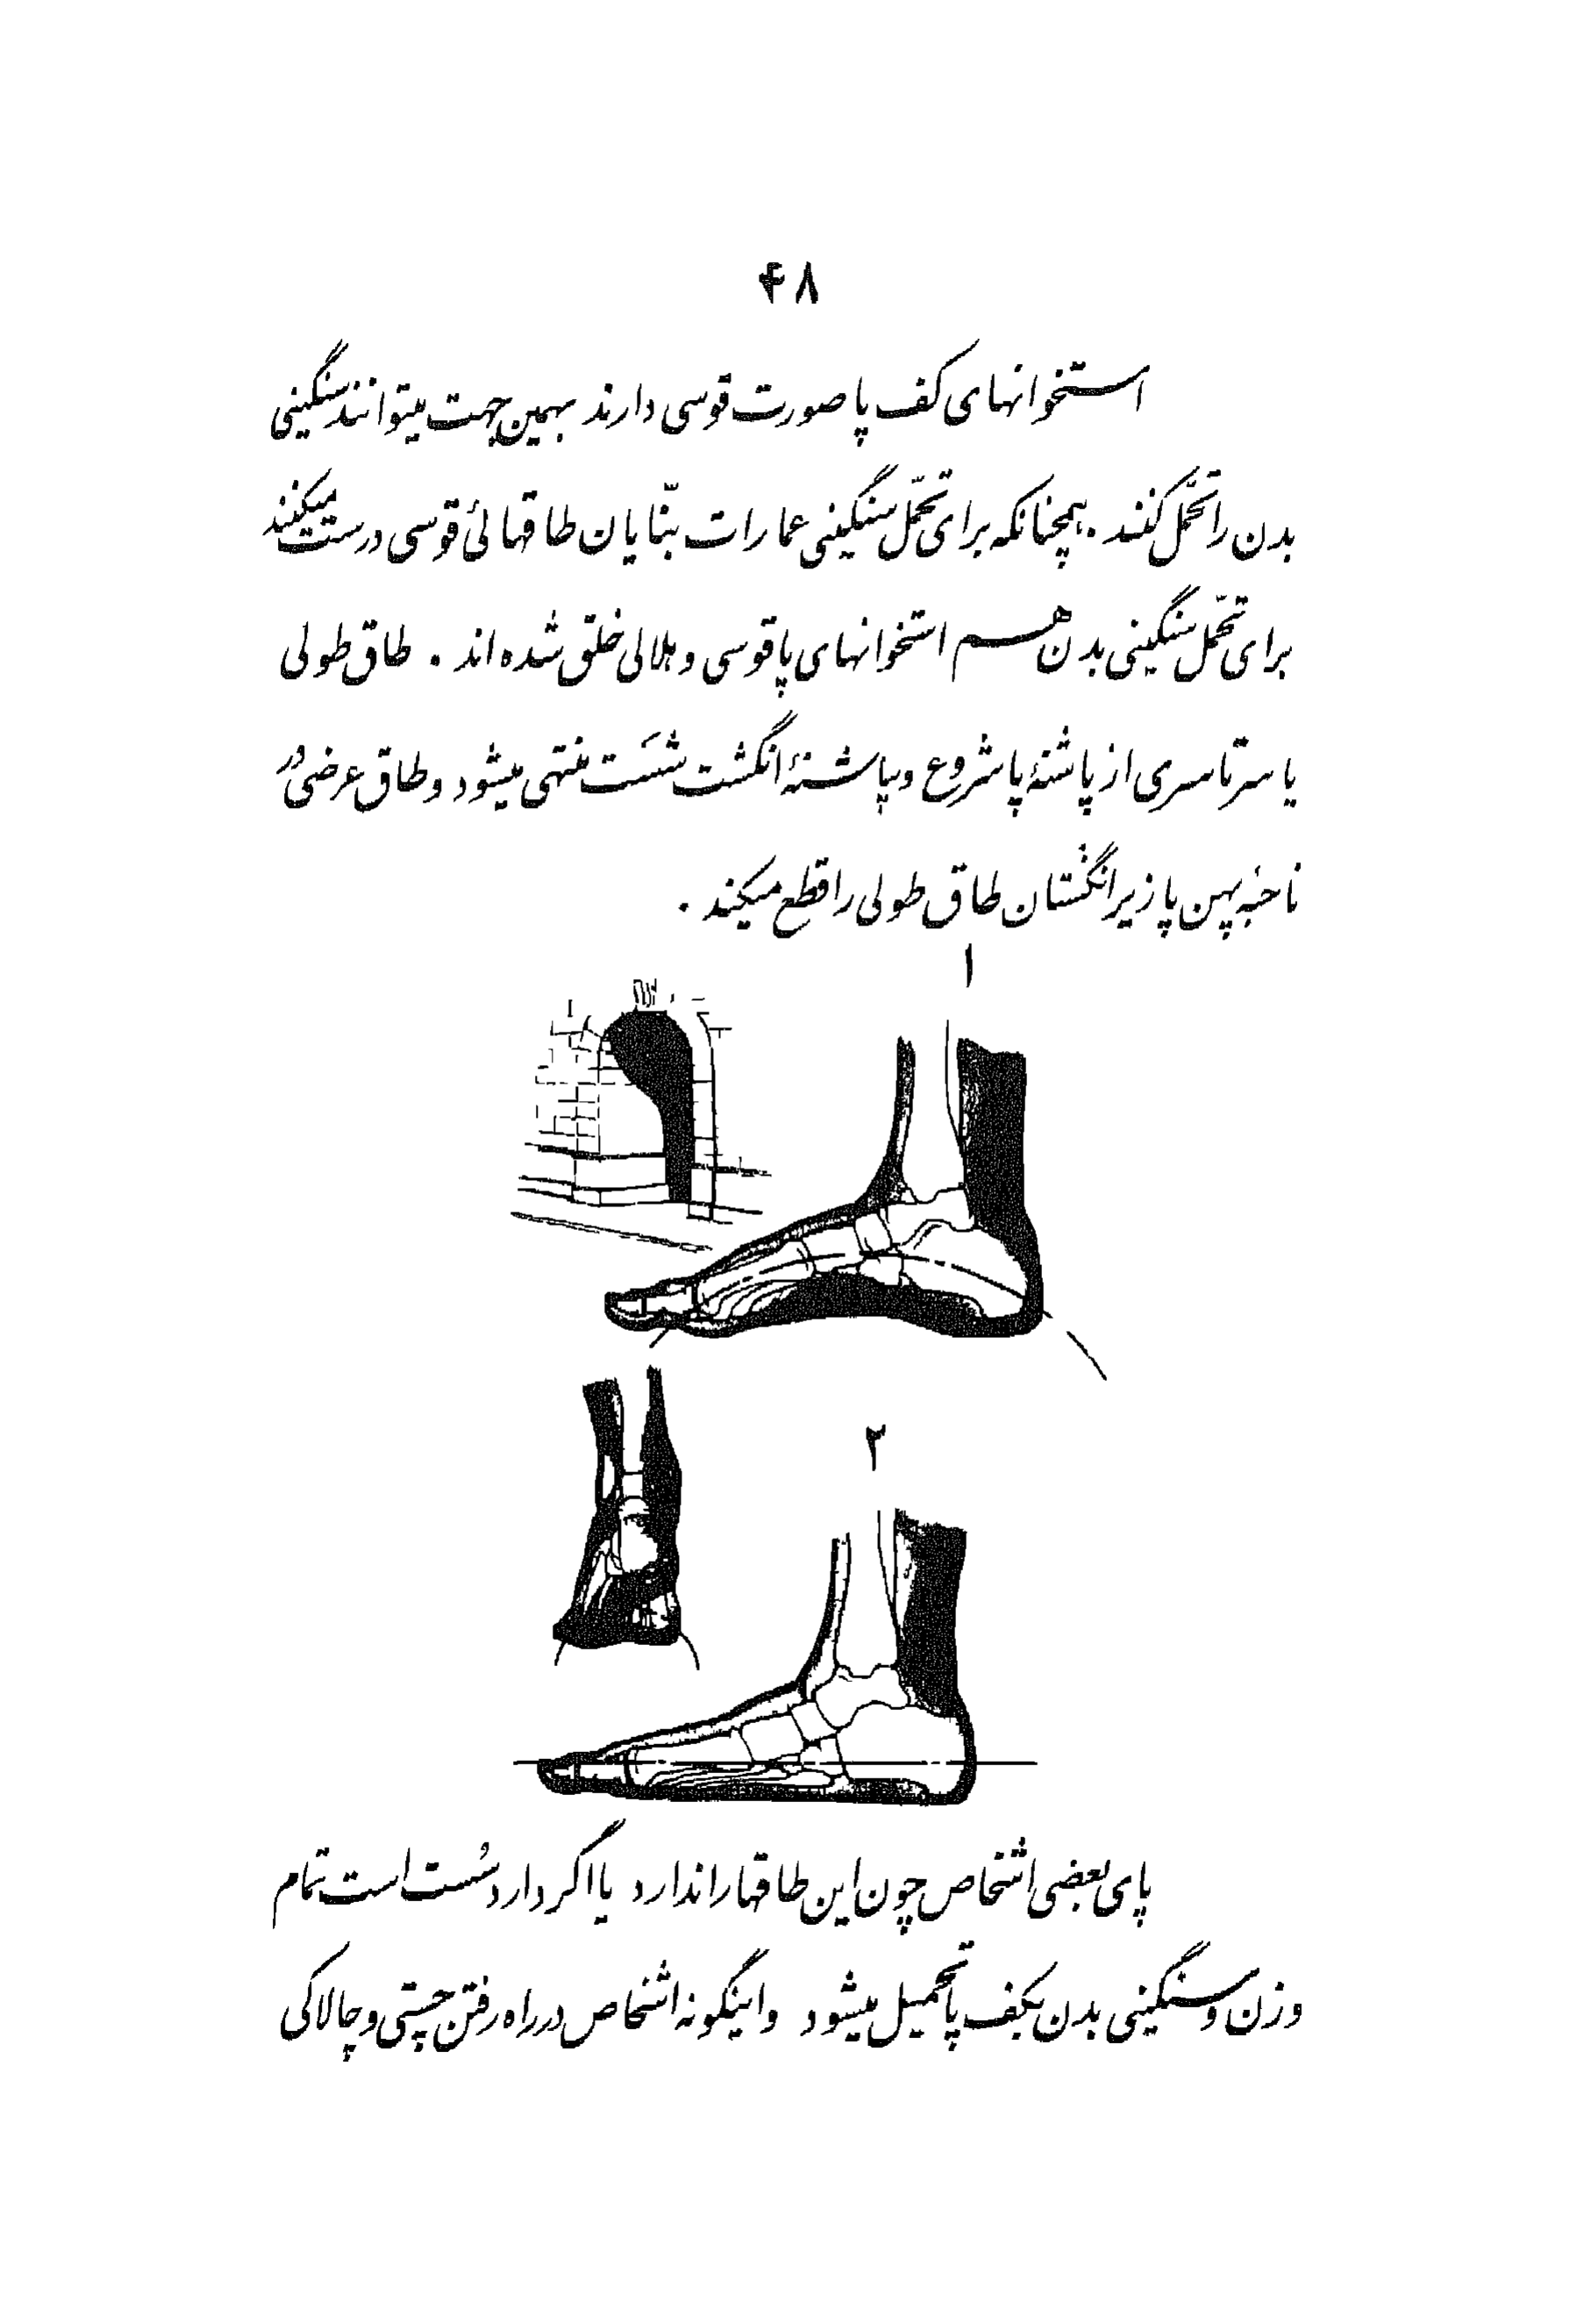 ۴۸
استخوانهای کف پا صورت قوسی دارند بهمین جهت میتوانند سنگینی
بدن را تحمّل کنند . همچنانکه برای تحمّل سنگینی عمارات بنّایان طاقهائی قوسی درست میکنند
برای تحمّل سنگینی بدن هم استخوانهای پا قوسی و هلالی خلق شده اند . طاق طولی
یا سرتاسری از پاشنهٔ پا شروع و بپاشنهٔ انگشت شَست منتهی میشود و طاق عرضی در
ناحیهٔ پهن پا زیر انگشتان طاق طولی را قطع میکند .
۱
۲
پای بعضی اشخاص چون این طاقها را ندارد یا اگر دارد سُست است تمام
وزن و سنگینی بدن بکف پا تحمیل میشود و اینگونه اشخاص در راه رفتن چستی و چالاکی